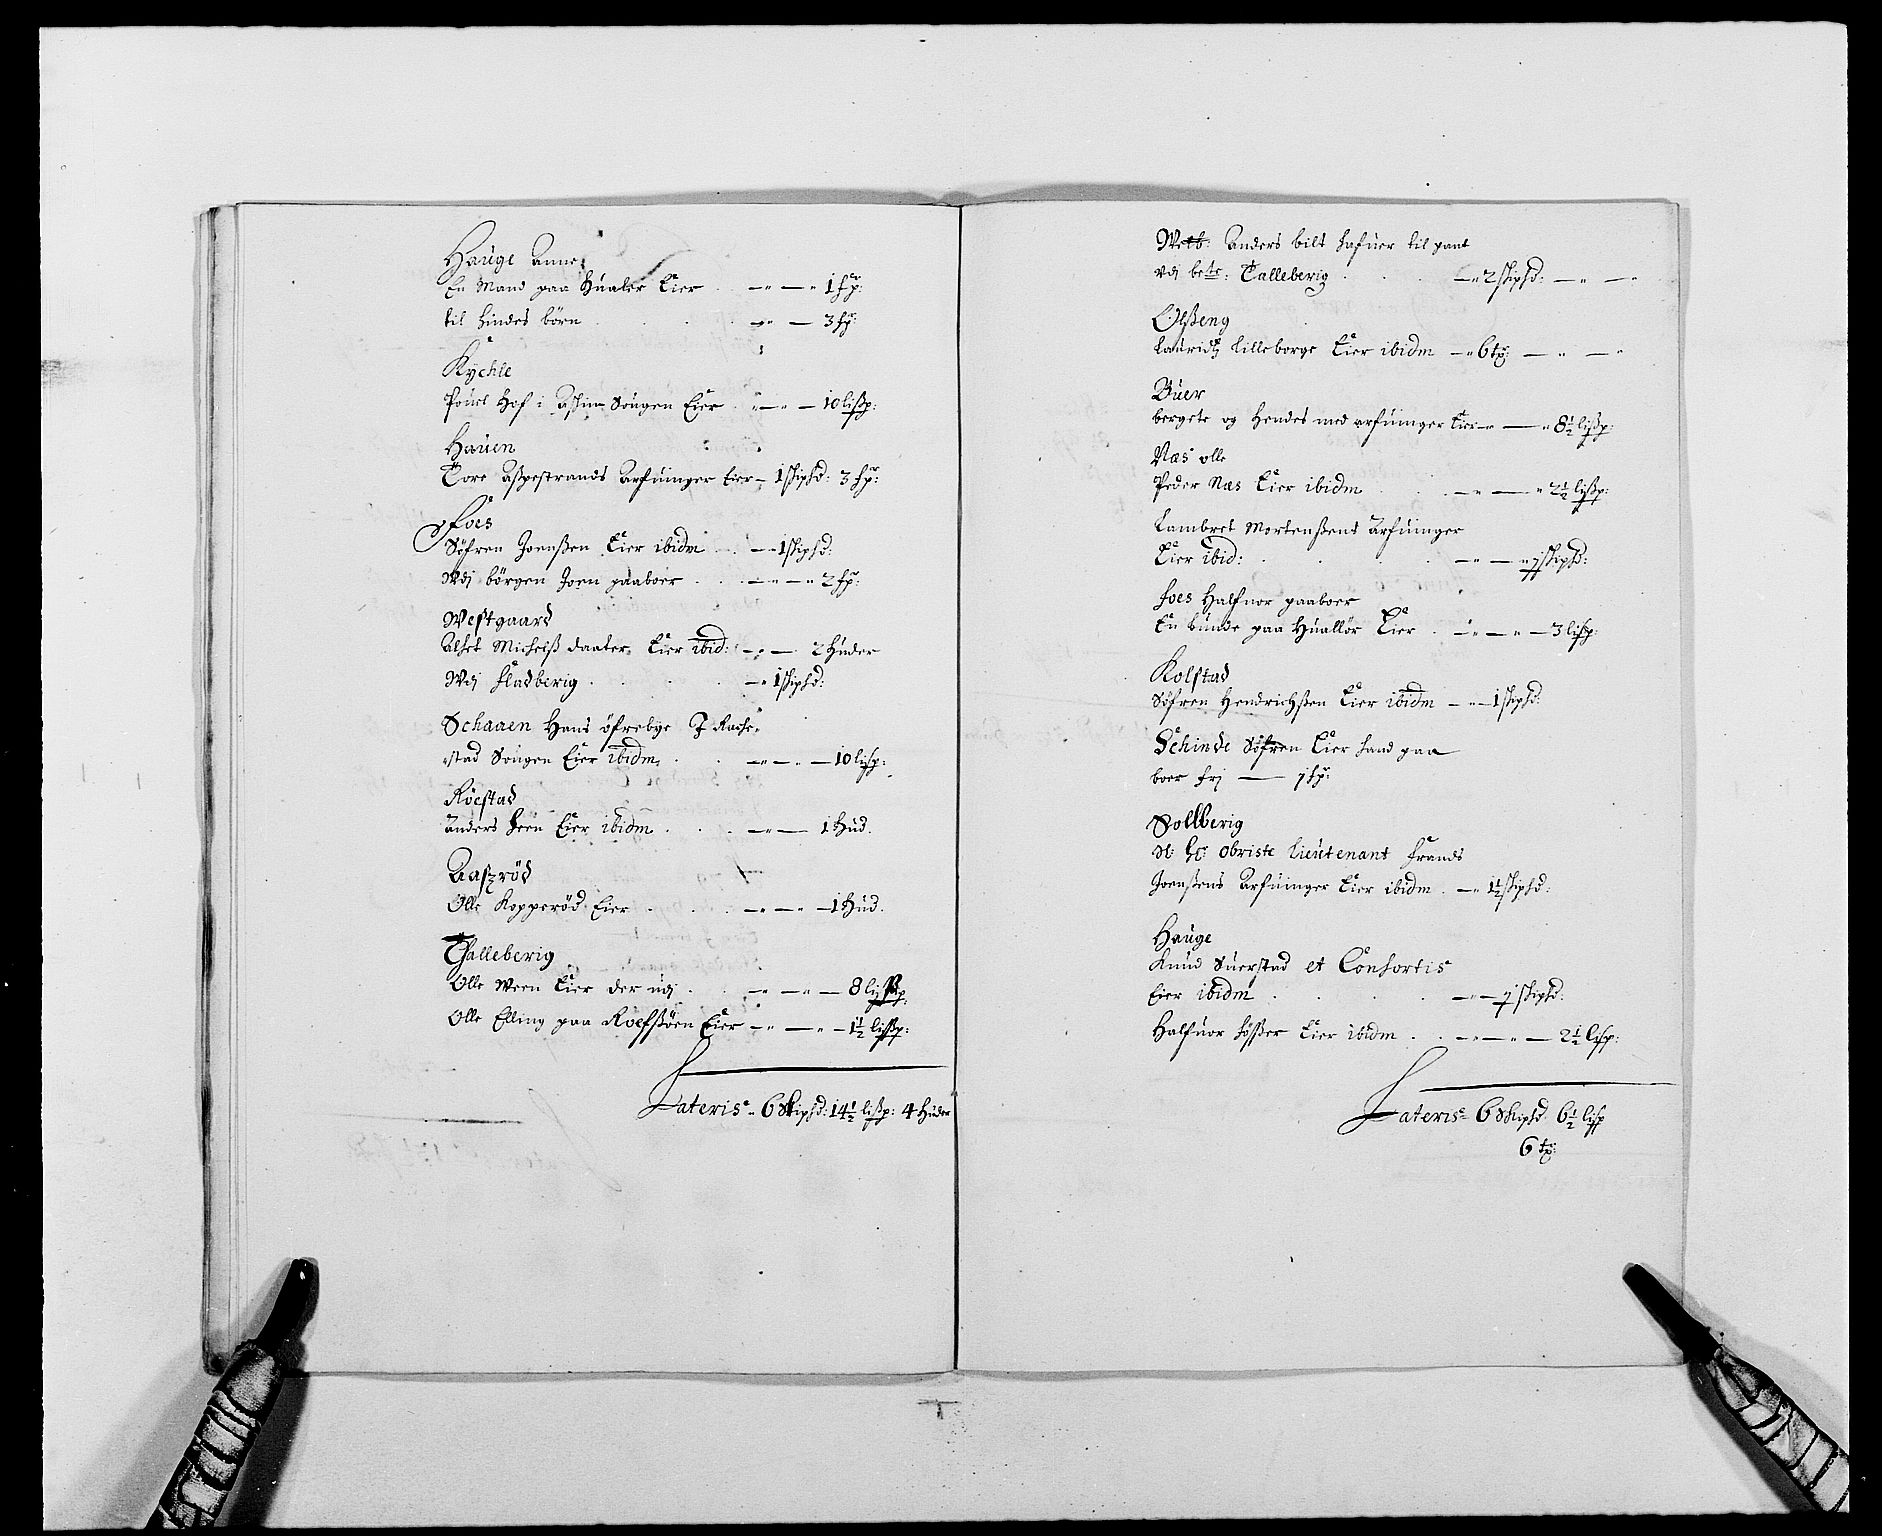 Hauge Anne
En Mand paa Hualer Eier . -"- -"- 1 hp:
til hindes börn . . . . -"- - 3 hp:
Kychle
Pouel Hof i Askim Sougen Eier . "- -"- 10 lisp:
Hauen
Tore Aspestrands Arfuinger Eier - 1 skipd: 3 hp:
Foes
Söfren Joenssen Eier ibidm . . -"- 1 skipd:
Udj börgen Joen paaboer . . . -"- -"- 2 hp:
Westgaard
Alhet Michelss daater Eier ibid: -"- - 2 Huder
Udj Fladberig . . . . . -" 1 skipd:
Schaaen Hans öfrebye J Rache-
stad Sougen Eier ibidm . . . -"- -"- 10 lisp:
Röestad
Anders Heen Eier ibidm . . . . -"- - 1 Hud.
Aaszröd
Olle Kopperöd Eier . . . . -"- -"- 1 Hud.
Thalleberig
Olle Ween Eier der udj . . . -"- -"- 8 lissp:
Olle Elling paa Roefssöen Eier -"- -"- 1½ lissp:
Lateris - 6 Skipd: 14½ lissp: 4 Huder
Anders bilt hafuer til pant
vdj bete: Talleberig . . . -" 2 skipd: -"- -"
Olsseng
Lauridtz Lilleborge Eier ibidm -" 6 tp: - " - "
Buer
bergete og Hendes med arfuinger Eier -"- -" 8½ lissp:
Næs olle
Peder Næs Eier ibidm . . . -"- -" 2½ lissp:
Lambret Mortenssens Arfuinger
Eier ibid: . . . . . -"- -" 1 skipd:
Foes Halfuor paaboer
En bunde paa Huallör Eier . -"- -"- 3 lisp:
Kolstad
Söfren Hendrichssen Eier ibidm -"- 1 skipd:
Schinde Söfren Eier hand paa
boer frj - 1 hp:
Sollberig
Sl: Hr: obriste Lieutenant Frands
Joenssens Arfuinger Eier ibidm . -" 1½ skipd:
Hauge
Knud Suerstad et Consortis
Eier ibidm . . . . . -"- 1 skipd:
Halfuor Fösser Eier ibidm . . -"- -"- 2½ lisp:
Lateris - 6 Skipd: 6½ lisp
6 tp: